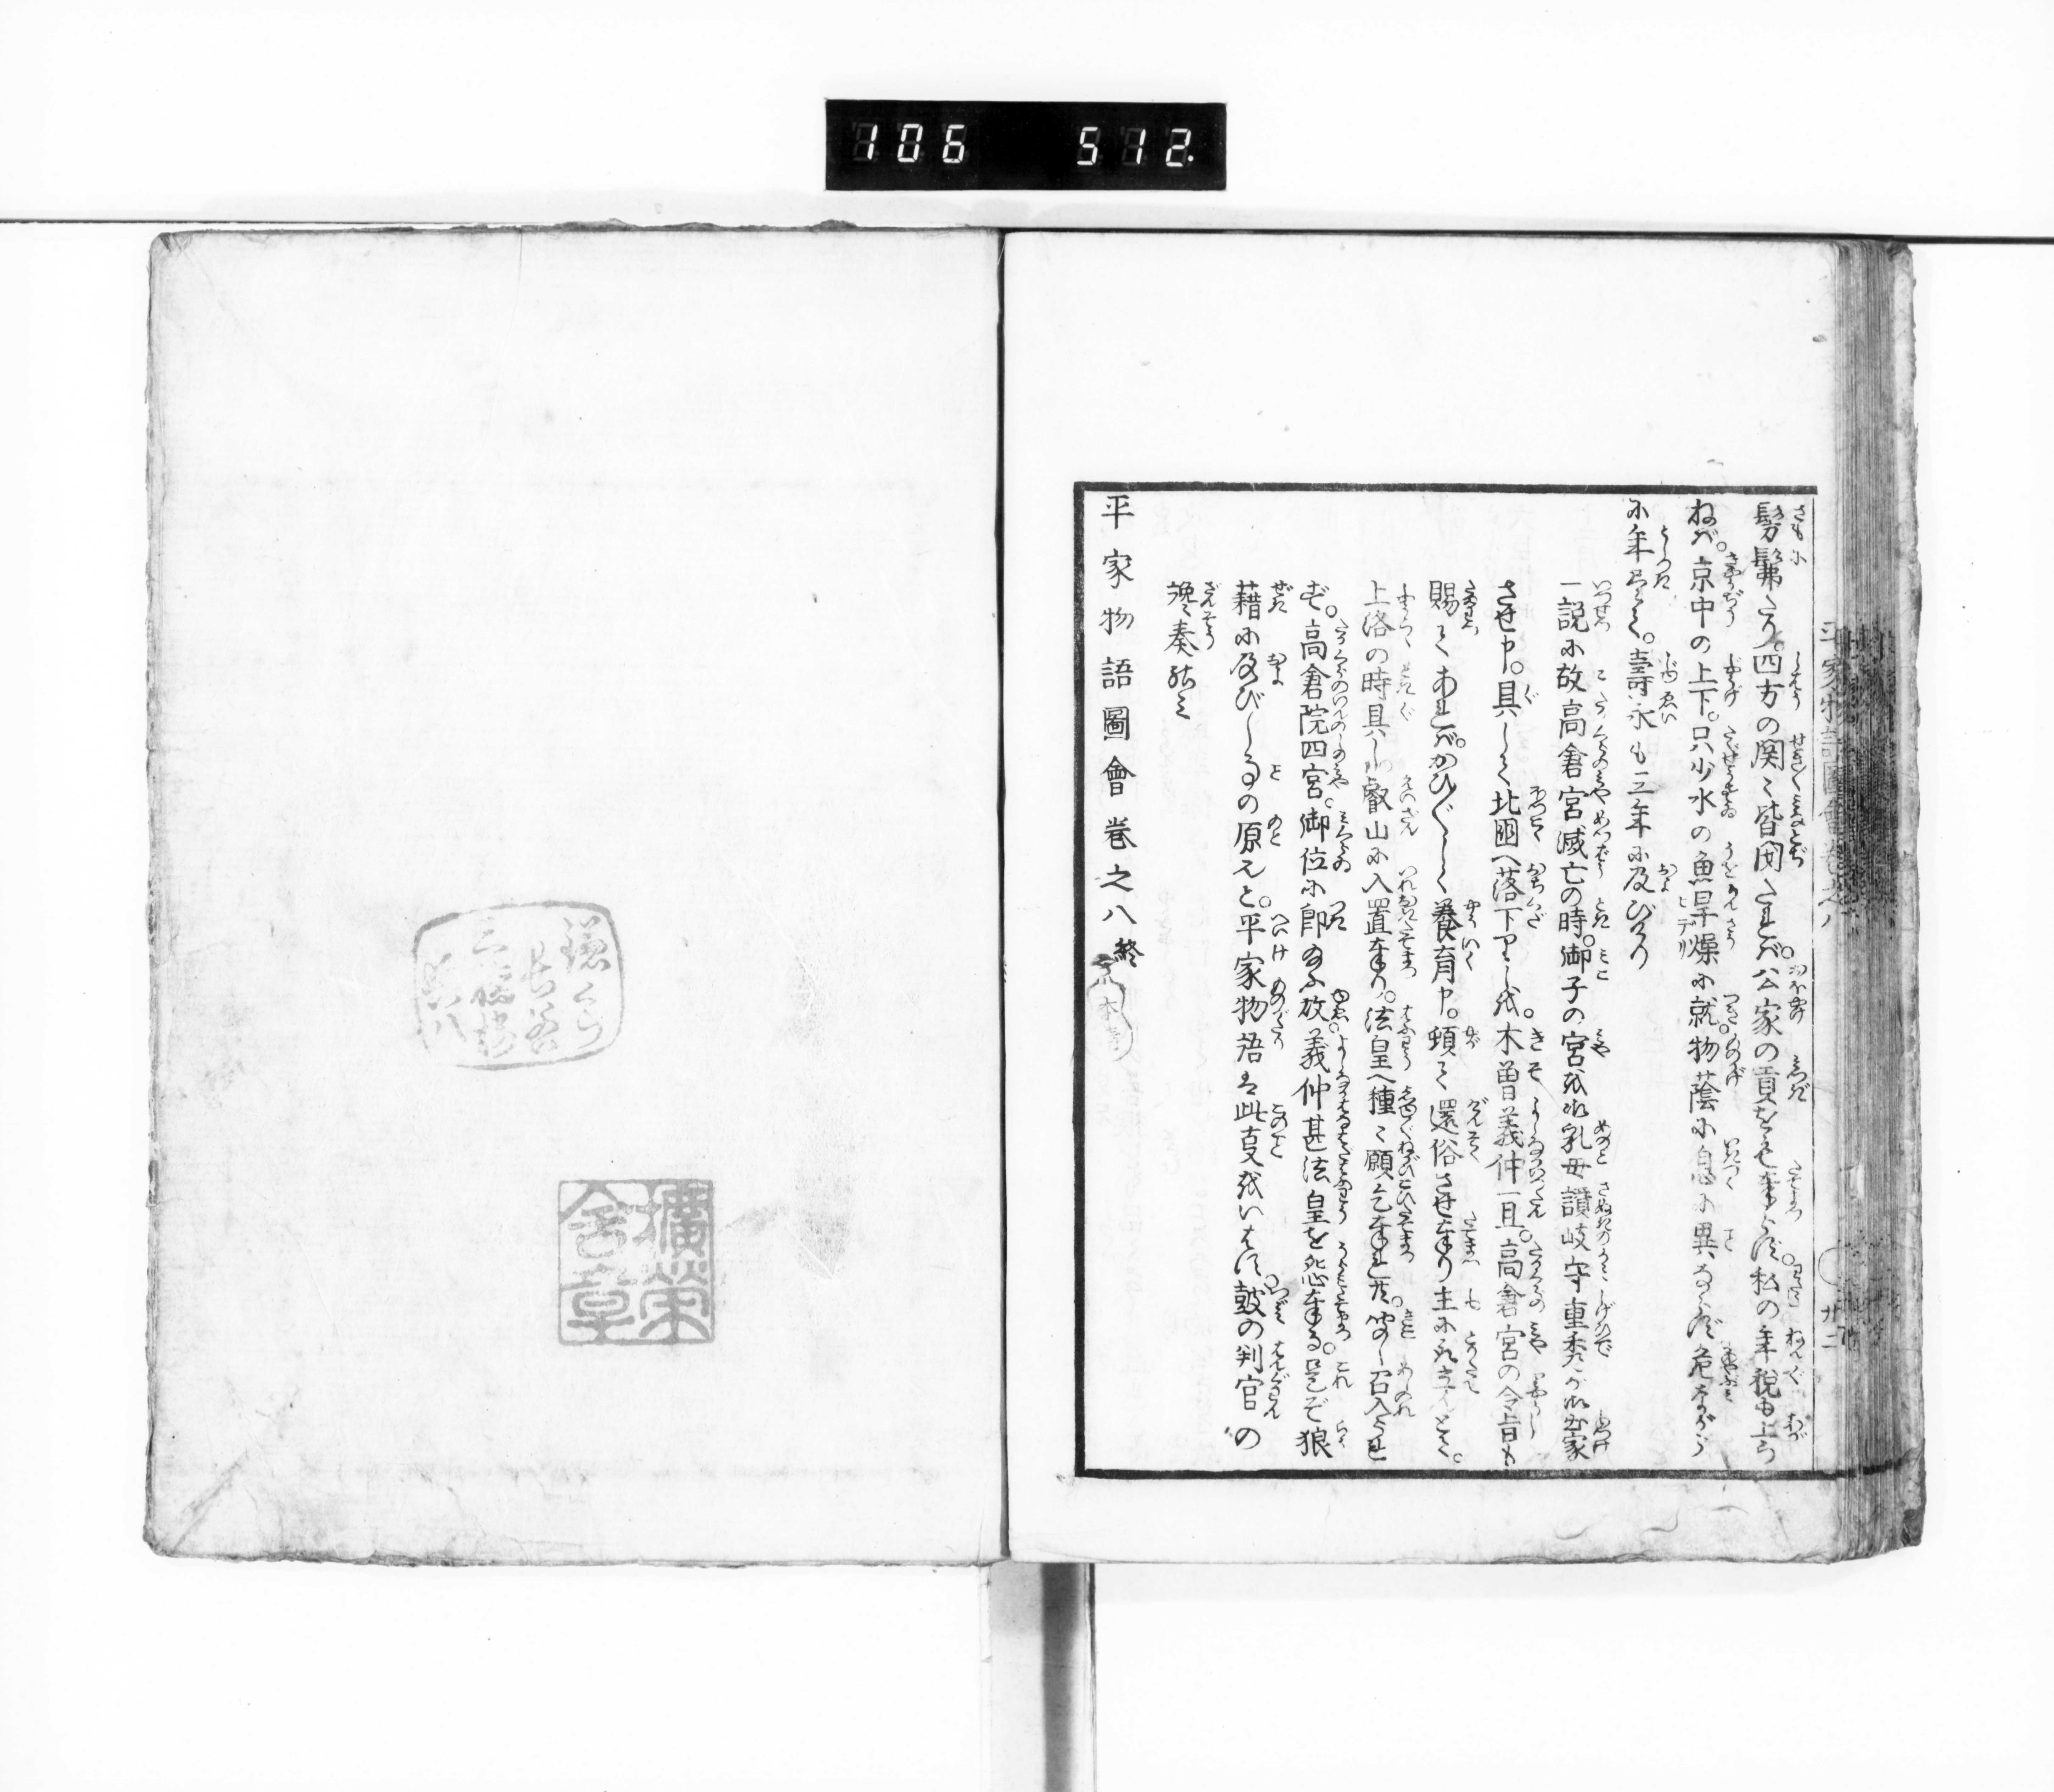 106 512
髣髴たり。四方の関々皆閉たれバ。公家の貢をも奉らず。私の年税も上ら
ねバ。京中の上下。只少水の魚旱燥に就。物蔭に息に異ならず。危ながら
に年くれて。壽永も三年に及びけり
一説に故高倉宮滅亡の時。御子の宮を御乳母讃岐守重秀が御出家
させ申。具して北国へ落下りしを。木曽義仲一旦。高倉宮の令旨も
賜てあれバ。かひ〴〵しく養育申。頓て還俗させ奉り主に取立んとて。
上洛の時具し叡山に入置奉り。法皇へ種々願乞奉れ共。聞し召入られ
ず。高倉院四宮。御位に即給ふ故。義仲甚法皇を怨奉る。是ぞ狼
藉に及びしるの原也と。平家物語は此事をいはず。鼓の判官の
讒奏のミ
平家物語圖會巻之八終
平家物語圖會巻之八
廿二